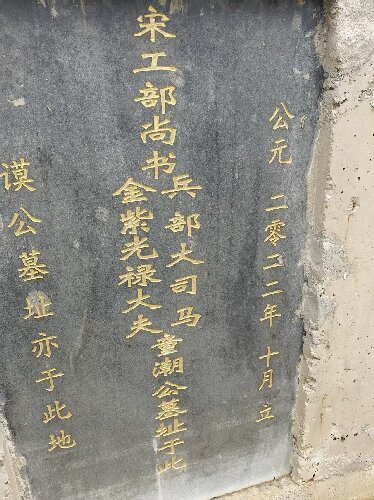 公元 二零二二年 十月 立
宋工部尚书
兵部大司马
金紫光禄大夫
童潮公墓址于此
谟公墓址亦于此地